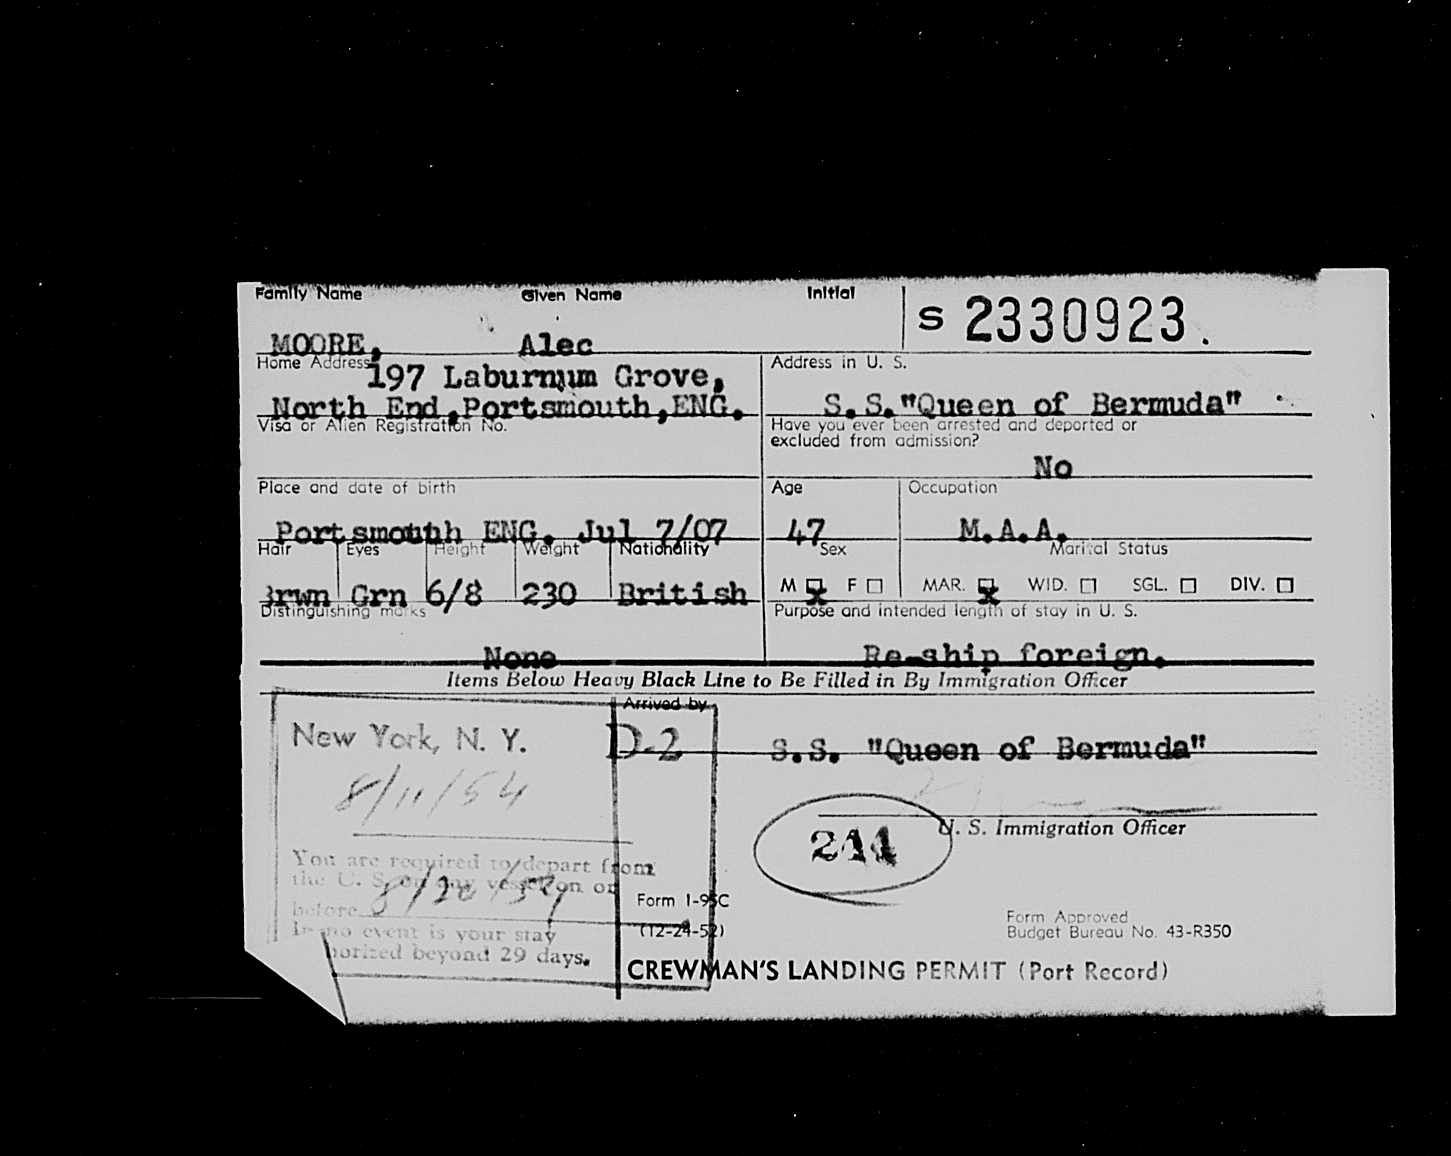 Family Name Given Name Initial
S 2330923.
MOORE, Alec
Home Address
197 Laburnum Grove,
North End,Portsmouth,ENG.
Address in U. S.
S.S."Queen of Bermuda"
Visa or Alien Registration No.
Have you ever been arrested and deported or
excluded from admission?
No
Place and date of birth
Portsmouth ENG. Jul 7/07
Age
47
Occupation
M.A.A.
Hair Eyes Height Weight Nationality
Brwn Grn 6/8 230 British
Sex
M F
Marital Status
MAR. WID. SGL. DIV.
Distinguishing marks
None
Purpose and intended length of stay in U. S.
Re-ship foreign.
Items Below Heavy Black Line to Be Filled in By Immigration Officer
Arrived by
New York, N. Y. D-2
S.S. "Queen of Bermuda"
8/11/54
U. S. Immigration Officer
244
You are required to depart from
the U. S. on any vessel on or
before 8/20/54
In no event is your stay
horized beyond 29 days.
Form I-95C
(12-24-52)
Form Approved
Budget Bureau No. 43-R350
CREWMAN'S LANDING PERMIT (Port Record)